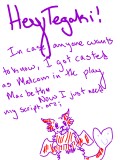 Hey Tegaki!
In case anyone wants
to know, I got casted
as Malcom in the play
Macbeth.
Now I just need
my script, ARG;